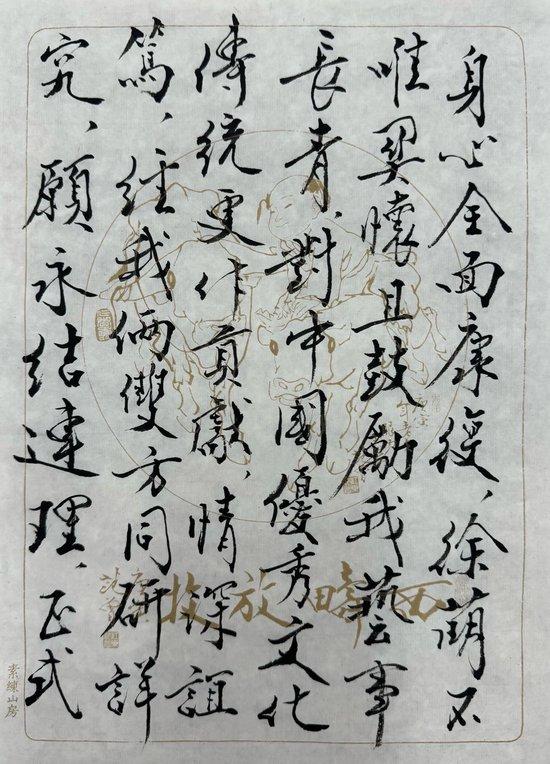 身心全面康復，徐萌不
唯關懷且鼓勵我藝事
長青，對中國優秀文化
傳統更作貢獻，情深誼
篤，經我倆雙方同研詳
究，願永結連理，正式
西疇放牧
素練山房